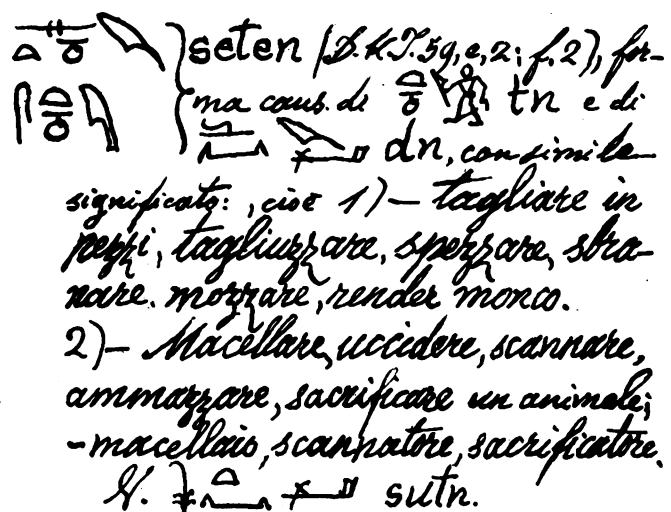 seten (D.K.T. 59, e, 2; f, 2), for-
ma caus. di tn e di
dn, con simile
significato: , cioè 1) — tagliare in
pezzi, tagliuzzare, spezzare, sbra-
nare. mozzare, render monco.
2) — Macellare, uccidere, scannare,
ammazzare, sacrificare un animale;
- macellaio, scannatore, sacrificatore.
V. sutn.